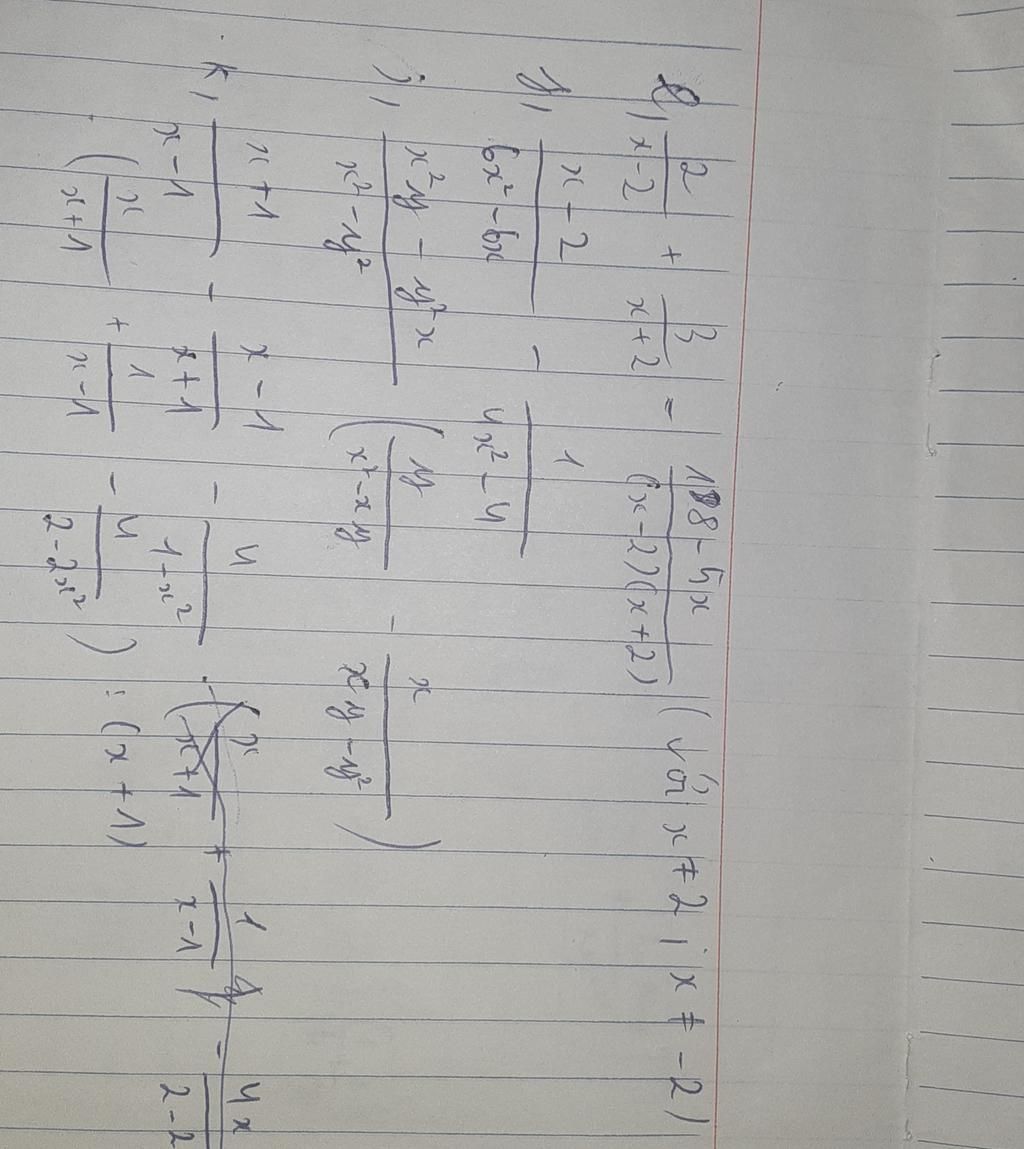 l, 2/(x-2) + 3/(x+2) = (18-5x)/((x-2)(x+2)) (với x ≠ 2 ; x ≠ -2)
y, (x-2)/(6x²-6x) - 1/(4x²-4)
j, (x²y - y²x)/(x²-y²) (y/(x²-xy) - x/(xy-y²))
k, (x+1)/(x-1) - (x-1)/(x+1) - 4/(1-x²) (x/(x+1) + 1/(x-1) - 4x/(2-2
(x/(x+1) + 1/(x-1) - 4/(2-2x²)) : (x+1)